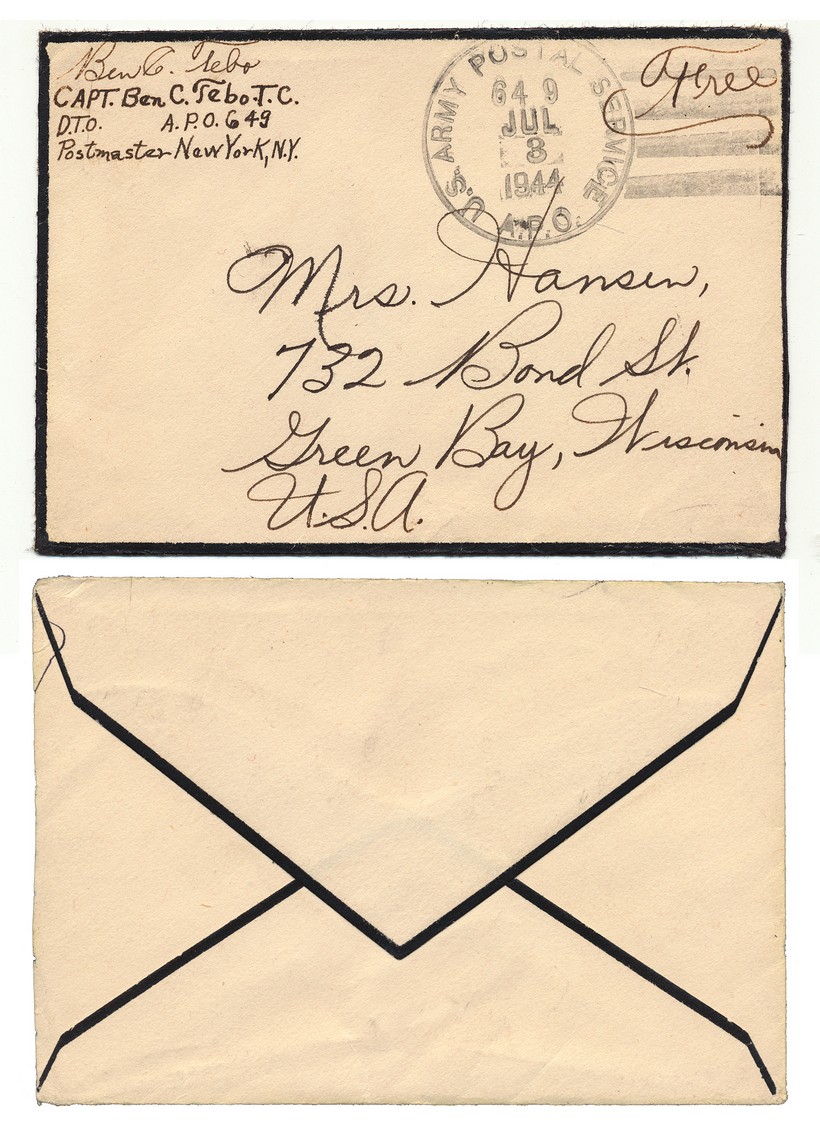 Ben C. Tebo
CAPT. Ben C. Tebo. T. C.
D.T.O. A.P.O. 649
Postmaster New York, N.Y.
U.S. ARMY POSTAL SERVICE
649
JUL
3
1944
A.P.O.
Free
Mrs. Hansen,
732 Bond St.
Green Bay, Wisconsin
U.S.A.